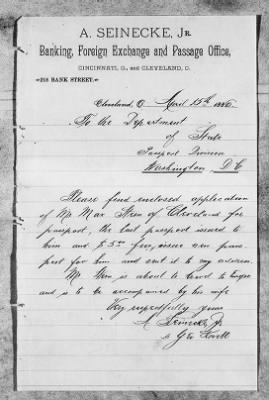 A. SEINECKE, JR.
Banking, Foreign Exchange and Passage Office,
CINCINNATI, O., and CLEVELAND, O.
218 BANK STREET.
Cleveland, O April 15th 1886
To the Department
of State
Passport Division
Washington, D C
Please find enclosed application
of Mr Max of Cleveland for
passport, the last passport issued to
him and $ 5.00 fee, issue new pass-
port for him and sent it to my address.
Mr is about to travel to Europe
and is to be accompanied by his wife
Very respectfully yours
A Seinecke Jr.
Geo